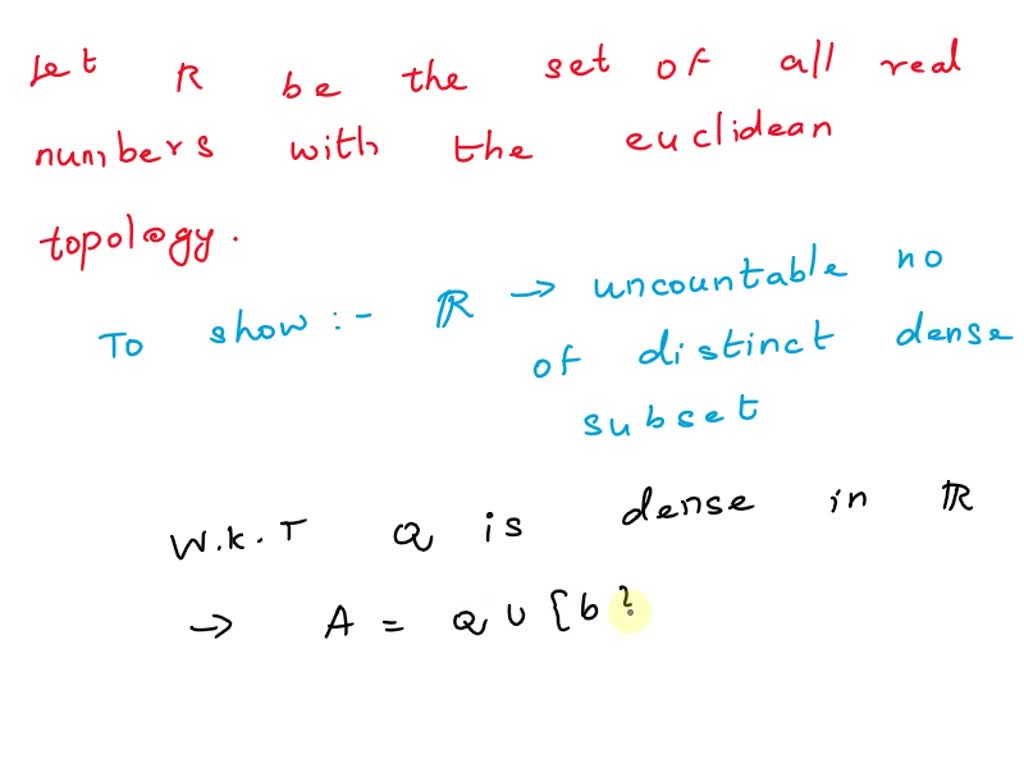 Let R be the set of all real
numbers with the euclidean
topology.
To show :- ℝ → uncountable no
of distinct dense
subset
W.K.T Q is dense in ℝ
→ A = Q ∪ {b}